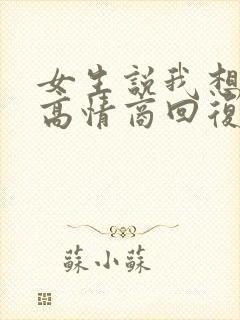 女生説我想
高情商回復
蘇小蘇